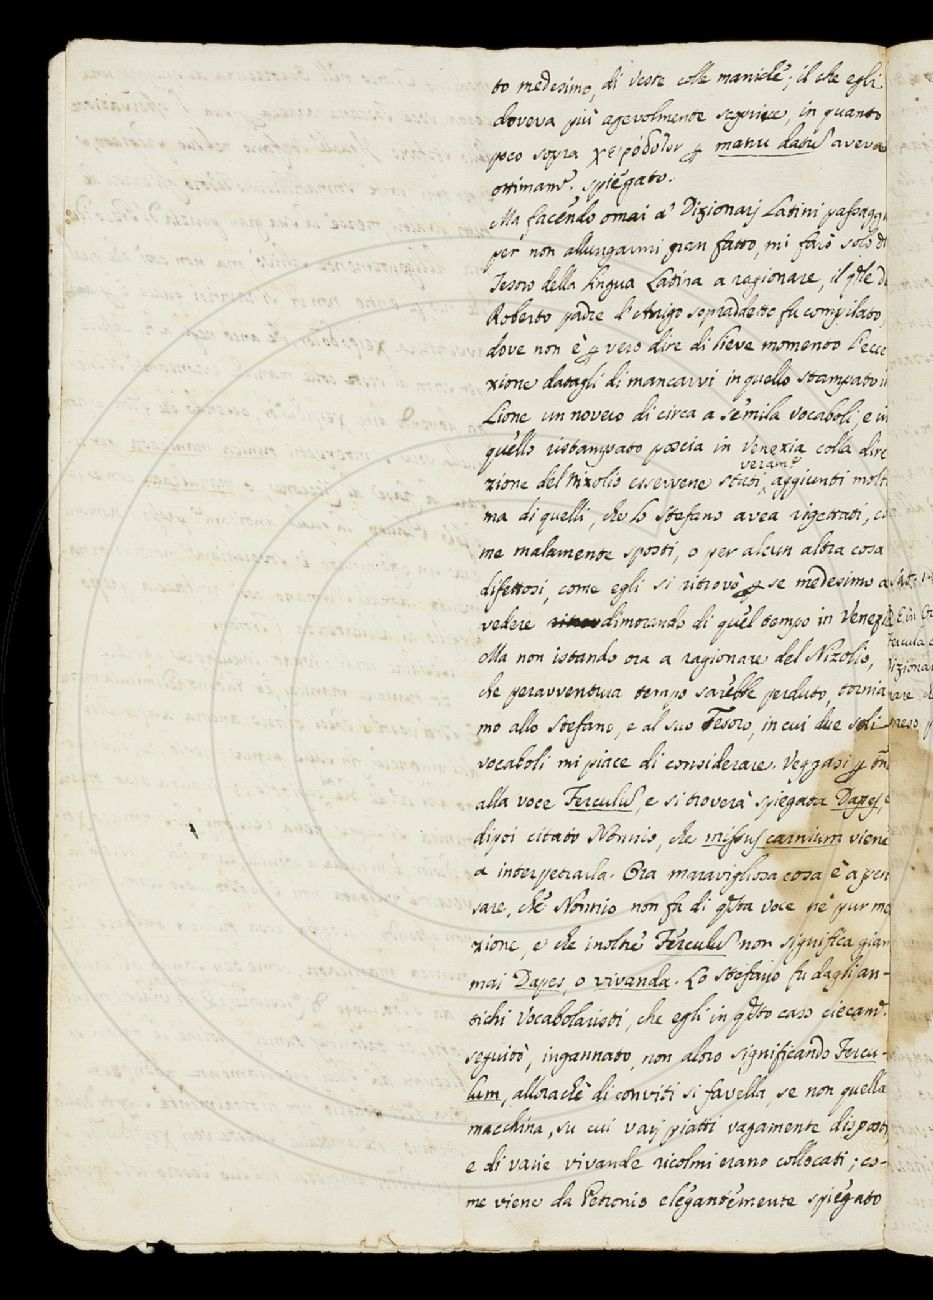 to medesimo, di veste colle maniche; il che egli
doveva più agevolmente seguire, in quanto
poco sopra χειρόδοτον ꝑ manu datũ aveva
ottimamᵉ. spiegato.
Ma facendo omai a' Dizionarj Latini passaggi
per non allungarmi gran fatto, mi farò solo d
Tesoro della lingua Latina a ragionare, il qle d
Roberto padre d'Arrigo sopraddetto fu compilato,
dove non è ꝑ vero dire di lieve momento l'ecce
zione datagli di mancarvi in quello stampato i
Lione un novero di circa a semila vocaboli, e in
quello ristampato poscia in Venezia colla dire
veramᵉ
zione del Nizolio esservene stati, aggiunti molt
ma di quelli, che lo Stefano avea rigettati, co
me malamente sposti, o per alcun altra cosa
difettosi, come egli si ritrovò ꝑ se medesimo a
vedere dimorando di quel tempo in Venezia
Ma non istando ora a ragionare del Nizolio,
che peravventura tempo sarebbe perduto, tornia
mo allo Stefano, e al suo Tesoro, in cui due soli
vocaboli mi piace di considerare. Veggasi ꝑ
alla voce Ferculũ, e si troverà spiegata Dapes, e
dipoi citato Nonnio, che missus carnium viene
a interpetrarla. Ora maravigliosa cosa è a pen
sare, che Nonnio non fa di qsta voce nè pur me
zione, e che inoltre Ferculũ non significa giam
mai Dapes, o vivanda. Lo Stefano fu dagli an-
tichi Vocabolaristi, che egli in qsto caso ciecamᵉ.
seguitò, ingannato, non altro significando Fercu-
lum, allorachè di conviti si favella, se non quella
macchina, su cui varj piatti vagamente disposti,
e di varie vivande ricolmi erano collocati; co-
me viene da Petronio elegantemente spiegato